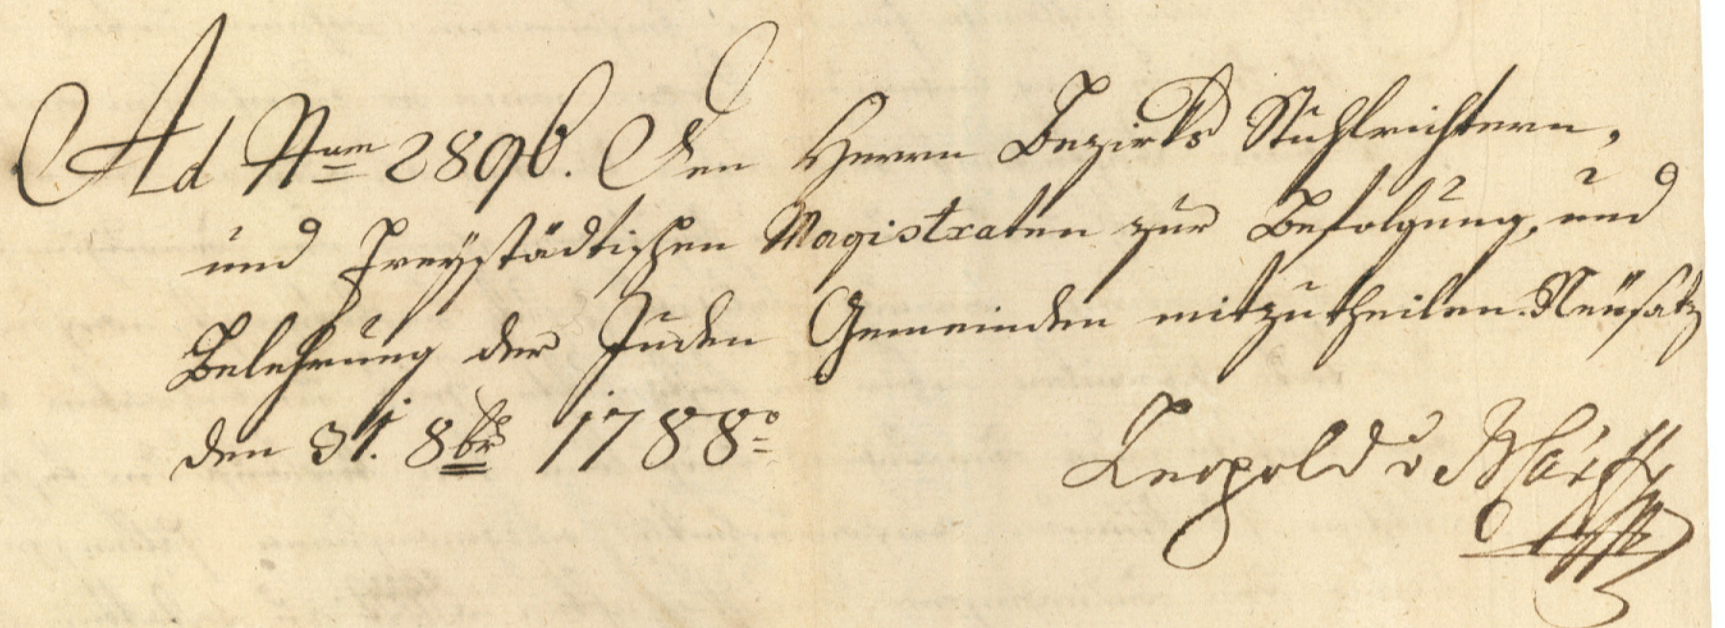 Ad Num 2896. Den Herrn Bezirks Stuhlrichtern,
und Freystädtischen Magistraten zur Befolgung, und
Belehrung der Juden Gemeinden mitzutheilen. Neüsatz
den 31. 8br 1788o
Leopold v